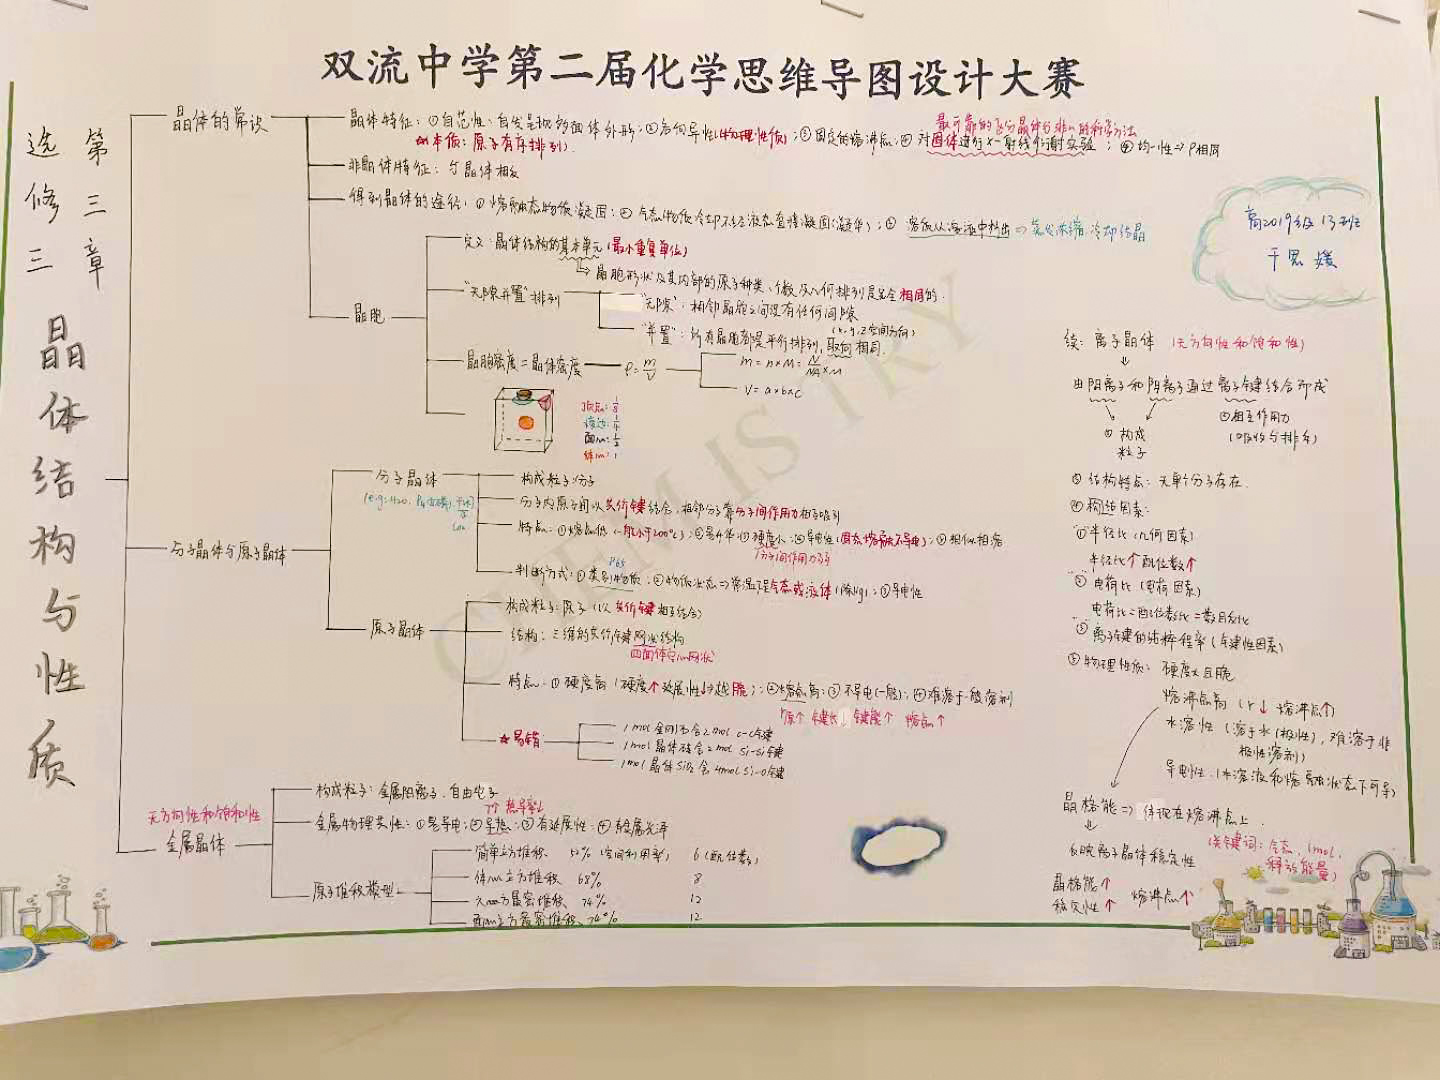 双流中学第二届化学思维导图设计大赛
选修三
第三章
晶体结构与性质
高2019级13班
干思媛
晶体的常识
晶体特征：①自范性：自发呈现多面体外形；②各向异性(物理性质)；③固定的熔沸点；④对固体进行X-射线衍射实验；④均一性⇒ρ相同
最可靠的区分晶体与非晶的科学方法
本质：原子有序排列)．
非晶体特征：与晶体相反
得到晶体的途径：①熔融态物质凝固；②气态物质冷却不经液态直接凝固(凝华)；③溶质从溶液中析出⇒蒸发浓缩、冷却结晶
晶胞
定义：晶体结构的基本单元(最小重复单位)
晶胞形状及其内部的原子种类、个数及几何排列是完全相同的．
"无隙并置"排列
"无隙"：相邻晶胞之间没有任何间隙
"并置"：所有晶胞都是平行排列，取向相同．
(x,y,z空间方向)
晶胞密度=晶体密度
ρ=m/V
m=n×M=N/NA×M
V=a×b×c
顶点：1/8
棱边：1/4
面心：1/2
体心：1
分子晶体与原子晶体
分子晶体
构成粒子：分子
分子内原子间以共价键结合，相邻分子靠分子间作用力相互吸引
特点：①熔点低(一般小于200℃)；②易升华；③硬度小；④导电性(固态、熔融不导电)；⑤相似相溶
分子间作用力弱
P65
判断方式：①类别物质；②物质状态⇒常温呈气态或液体(除Hg)；③导电性
原子晶体
构成粒子：原子(以共价键相互结合)
结构：三维的共价键网状结构
四面体空间网状
特点：①硬度高(硬度↑延展性↓越脆)；②熔点高；③不导电(一般)；④难溶于一般溶剂
r原↑ 键长↓ 键能↑ 熔点↑
★易错
1mol金刚石含2mol C-C键
1mol晶体硅含2mol Si-Si键
1mol晶体SiO2含4mol Si-O键
无方向性和饱和性
金属晶体
构成粒子：金属阳离子、自由电子
T↑ 热导率↓
金属物理共性：①易导电；②导热；③有延展性；④有金属光泽
原子堆积模型
简单立方堆积、52%(空间利用率) 6(配位数)
体心立方堆积 68% 8
六方最密堆积、74% 12
面心立方最密堆积、74% 12
续：离子晶体 (无方向性和饱和性)
由阴离子和阳离子通过离子键结合而成
②构成粒子
①相互作用力
(吸引与排斥)
③结构特点：无单个分子存在．
④构造因素：
①半径比(几何因素)
半径比↑配位数↑
②电荷比(电荷因素)
电荷比=配位数比=数目反比
③离子键的纯粹程度(键性因素)
⑤物理性质：硬度大且脆
熔沸点高(r↓ 熔沸点↑)
水溶性(溶于水(极性)，难溶于非极性溶剂)
导电性．(水溶液和熔融状态下可导)
晶格能⇒体现在熔沸点上．
反映离子晶体稳定性
(关键词：气态、1mol、释放能量)
晶格能↑
稳定性↑ 熔沸点↑
CHEMISTRY